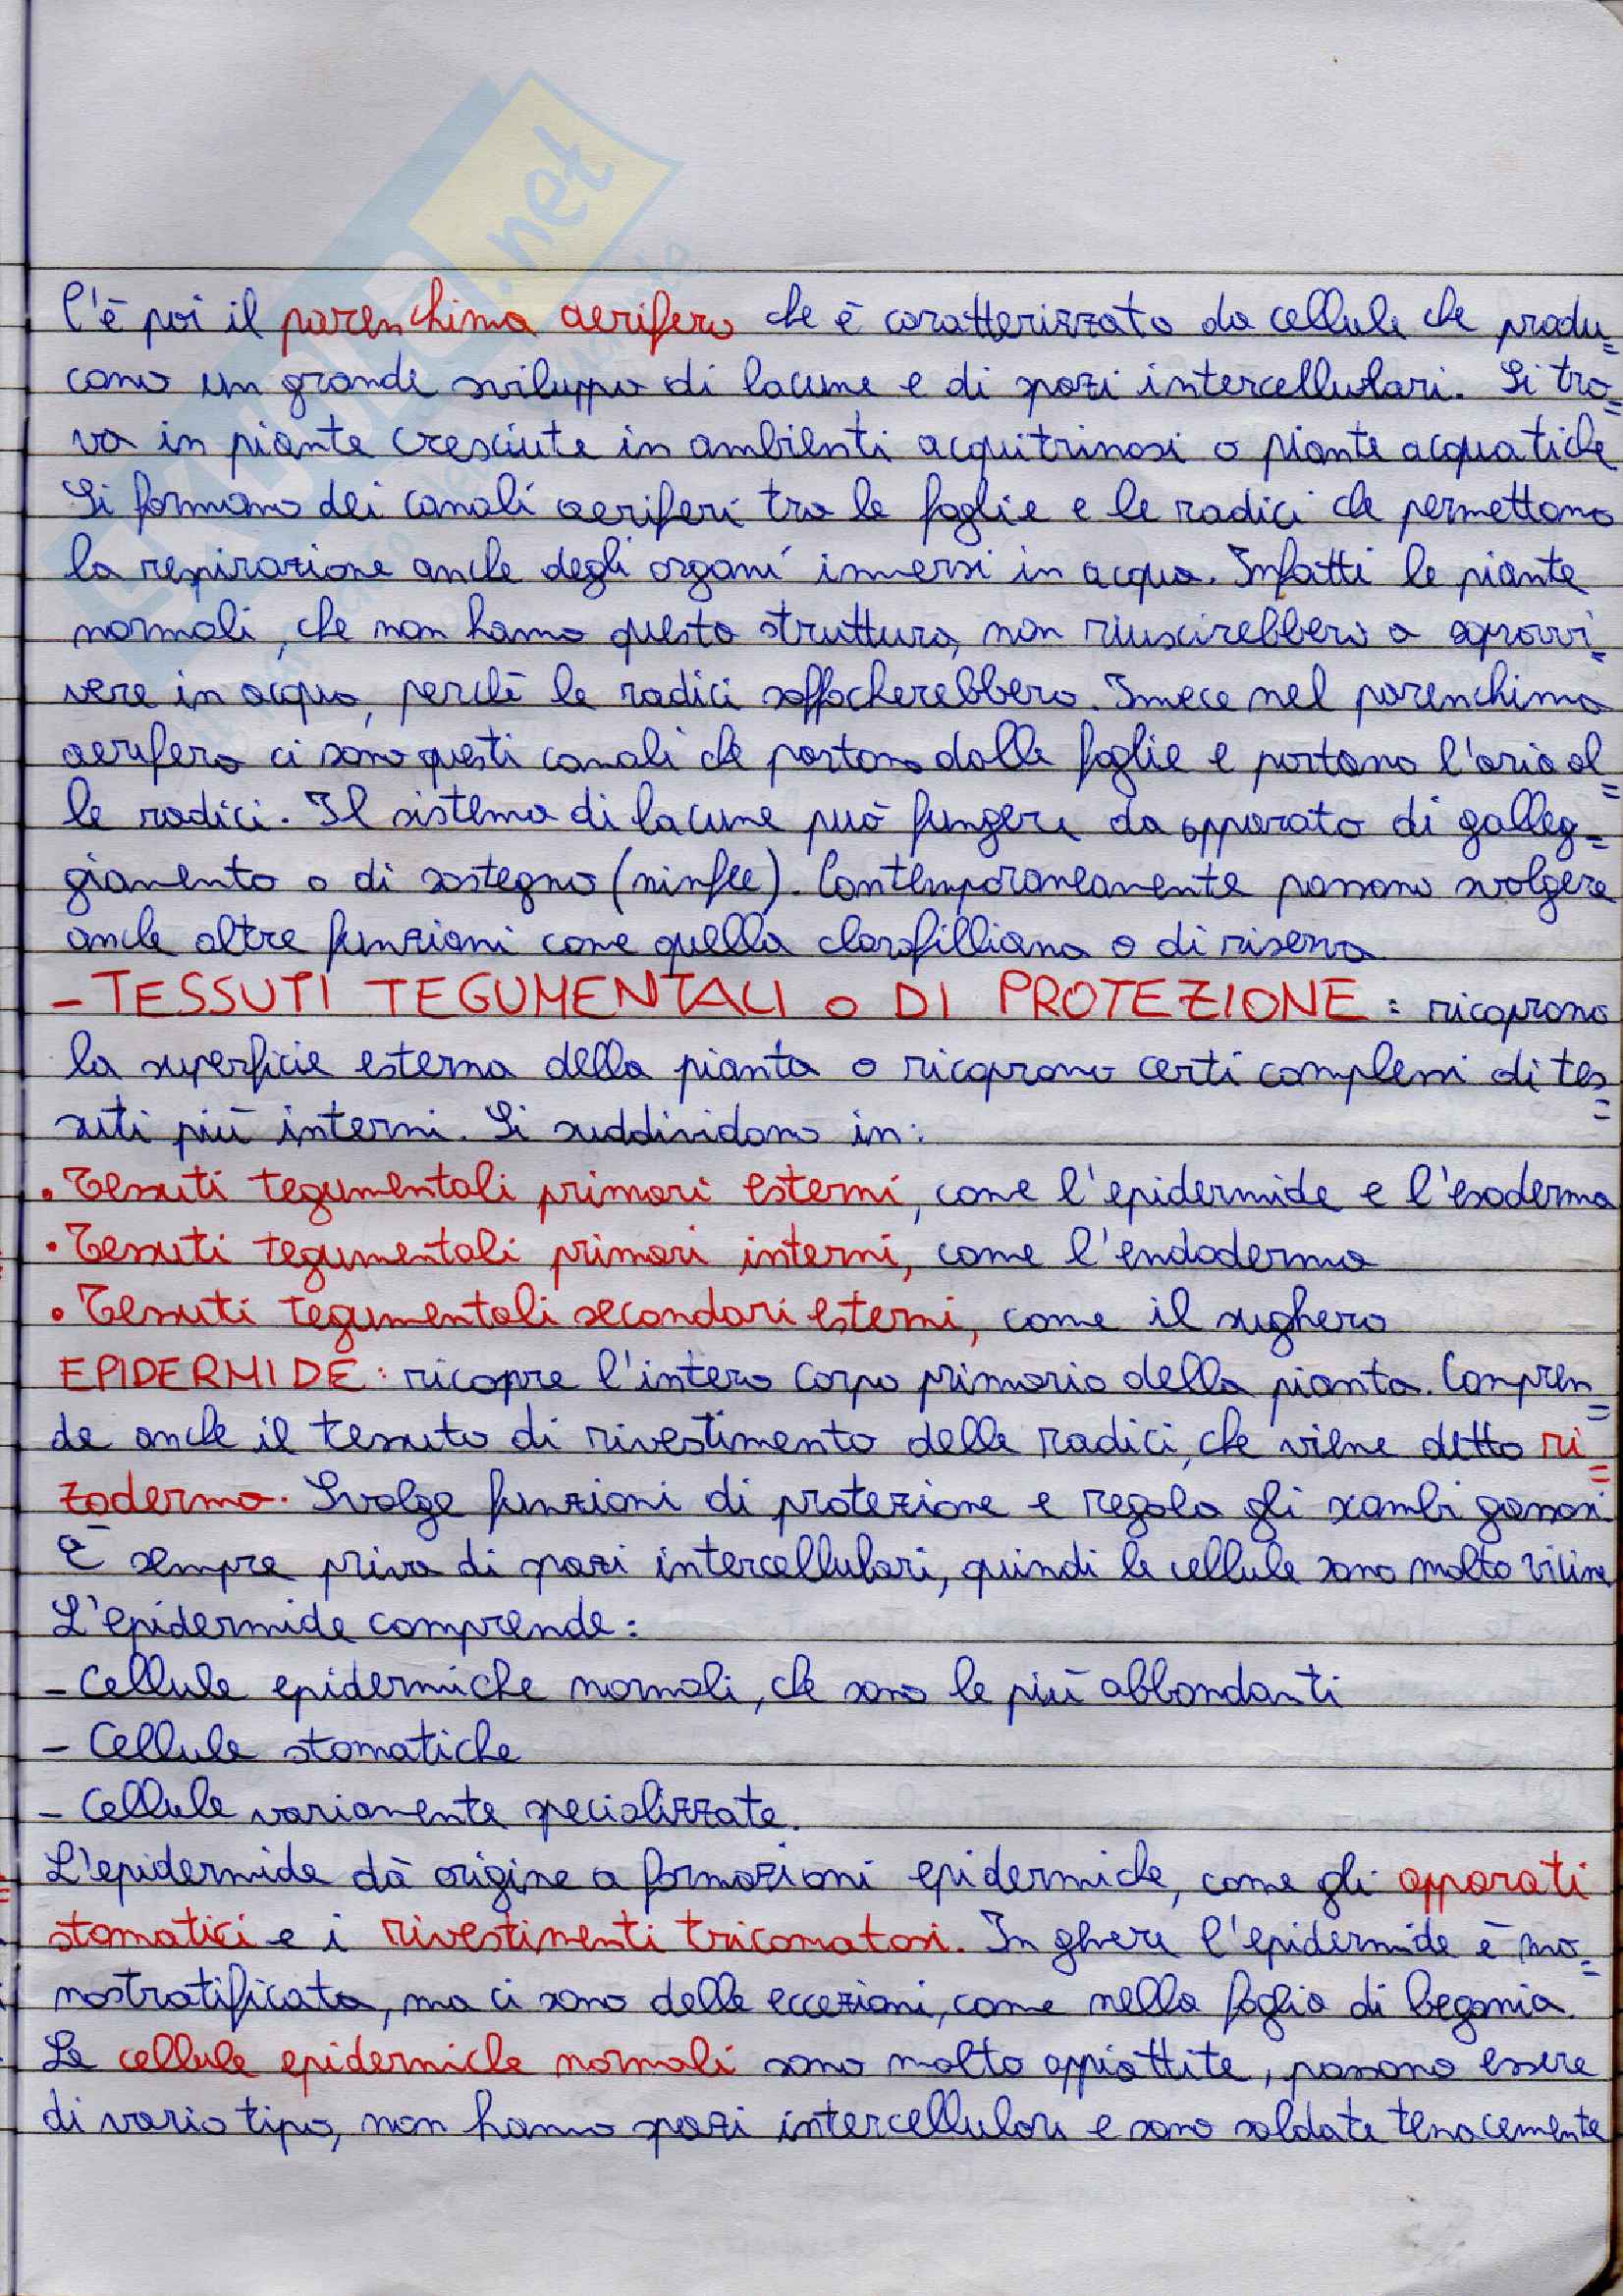 C'è poi il parenchima aerifero che è caratterizzato da cellule che produ=
cono un grande sviluppo di lacune e di spazi intercellulari. Si tro=
va in piante cresciute in ambienti acquitrinosi o piante acquatiche
Si formano dei canali aeriferi tra le foglie e le radici che permettono
la respirazione anche degli organi immersi in acqua. Infatti le piante
normali, che non hanno questa struttura, non riuscirebbero a sopravvi=
vere in acqua, perchè le radici soffocherebbero. Invece nel parenchima
aerifero ci sono questi canali che partono dalle foglie e portano l'aria al=
le radici. Il sistema di lacune può fungere da apparato di galleg=
giamento o di sostegno (ninfee). Contemporaneamente possono svolgere
anche altre funzioni come quella clorofilliana o di riserva
- TESSUTI TEGUMENTALI o DI PROTEZIONE : ricoprono
la superficie esterna della pianta o ricoprono certi complessi di tes=
suti più interni. Si suddividono in:
• Tessuti tegumentali primari esterni, come l'epidermide e l'esoderma
• Tessuti tegumentali primari interni, come l'endoderma
• Tessuti tegumentali secondari esterni, come il sughero
EPIDERMIDE: ricopre l'intero corpo primario della pianta. Compren=
de anche il tessuto di rivestimento delle radici, che viene detto ri=
zoderma. Svolge funzioni di protezione e regola gli scambi gassosi
È sempre priva di spazi intercellulari, quindi le cellule sono molto vicine
L'epidermide comprende:
- Cellule epidermiche normali, che sono le più abbondanti
- Cellule stomatiche
- Cellule variamente specializzate.
L'epidermide dà origine a formazioni epidermiche, come gli apparati
stomatici e i rivestimenti tricomatosi. In genere l'epidermide è mo=
nostratificata, ma ci sono delle eccezioni, come nella foglia di begonia.
Le cellule epidermiche normali sono molto appiattite, possono essere
di vario tipo, non hanno spazi intercellulari e sono saldate tenacemente
SKUOLA.net